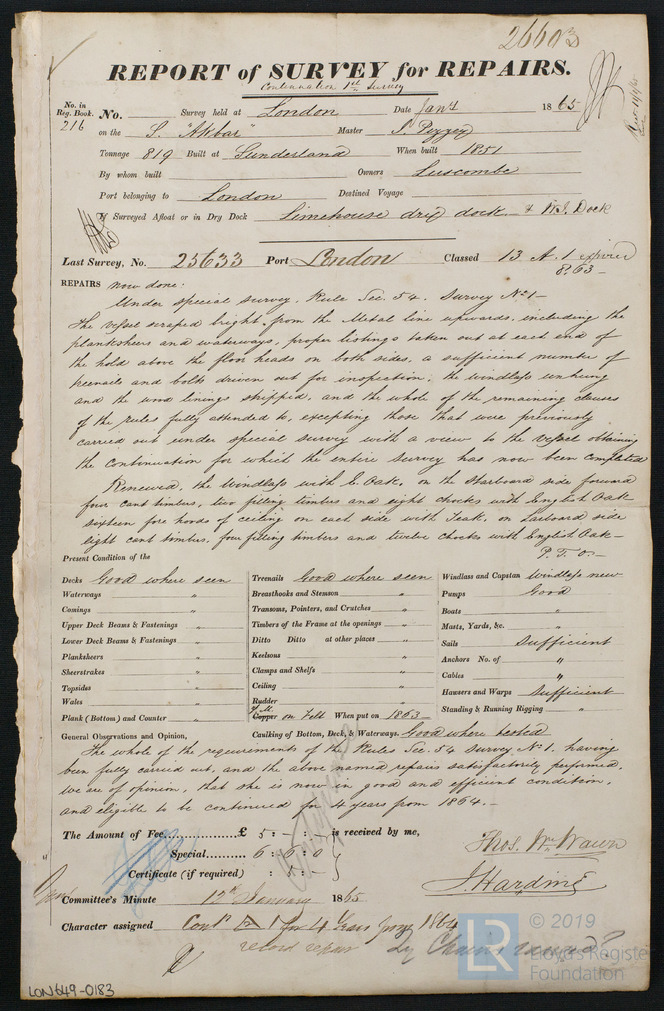 26603
REPORT of SURVEY for REPAIRS.
Continuation 1st Survey
No. in Reg. Book. 216 No. Survey held at London Date Jany 1865
on the S. "Akbar" Master S. Pezzey
Tonnage 819 Built at Sunderland When built 1851
By whom built Owners Luscombe
Port belonging to London Destined Voyage
If Surveyed Afloat or in Dry Dock Limehouse dry dock & W.I. Dock
Last Survey, No. 25633 Port London Classed 13 A.1 expired
8.63
REPAIRS now done:
Under special survey, Rule Sec. 54. Survey No 1
The vessel scraped bright from the Metal line upwards, including the
planksheers and waterways, proper listings taken out at each end of
the hold above the floor heads on both sides, a sufficient number of
treenails and bolts driven out for inspection, the windlass unhung
and the wood linings stripped, and the whole of the remaining clauses
of the rules fully attended to, excepting those that were previously
carried out under special survey with a view to the vessel obtaining
the continuation for which the entire survey has now been completed
Renewed, the Windlass with E. Oak, on the Starboard side forward
four cant timbers, two filling timbers and eight chocks with English Oak
sixteen fore hoods of ceiling on each side with Teak, on Larboard side
eight cant timbers, four filling timbers and twelve chocks with English Oak
P.T.O.
Present Condition of the
Decks Good where seen
Waterways "
Comings "
Upper Deck Beams & Fastenings "
Lower Deck Beams & Fastenings "
Planksheers "
Sheerstrakes "
Topsides "
Wales "
Plank (Bottom) and Counter "
Treenails Good where seen
Breasthooks and Stemson "
Transoms, Pointers, and Crutches "
Timbers of the Frame at the openings "
Ditto Ditto at other places "
Keelsons "
Clamps and Shelfs "
Ceiling "
Rudder "
Y.M.
Copper on Felt When put on 1863
Caulking of Bottom, Deck, & Waterways Good where tested
Windlass and Capstan Windlass new
Pumps Good
Boats "
Masts, Yards, &c. "
Sails Sufficient
Anchors No. of "
Cables "
Hawsers and Warps Sufficient
Standing & Running Rigging "
General Observations and Opinion,
The whole of the requirements of the Rules Sec. 54 Survey No 1. having
been fully carried out, and the above named repairs satisfactorily performed,
we are of opinion, that she is now in good and efficient condition,
and eligible to be continued for 4 years from 1864.
The Amount of Fee............... £ 5 : - : - is received by me,
Special.......... 6 : 6 : 0
Certificate (if required) : 5 :
Thos. Wm. Wawn
J. Harding
Committee's Minute 12th January 1865
Character assigned Contd A 1 for 4 Years from 1864
record repair
LON649-0183
LR © 2019
Lloyd's Register
Foundation